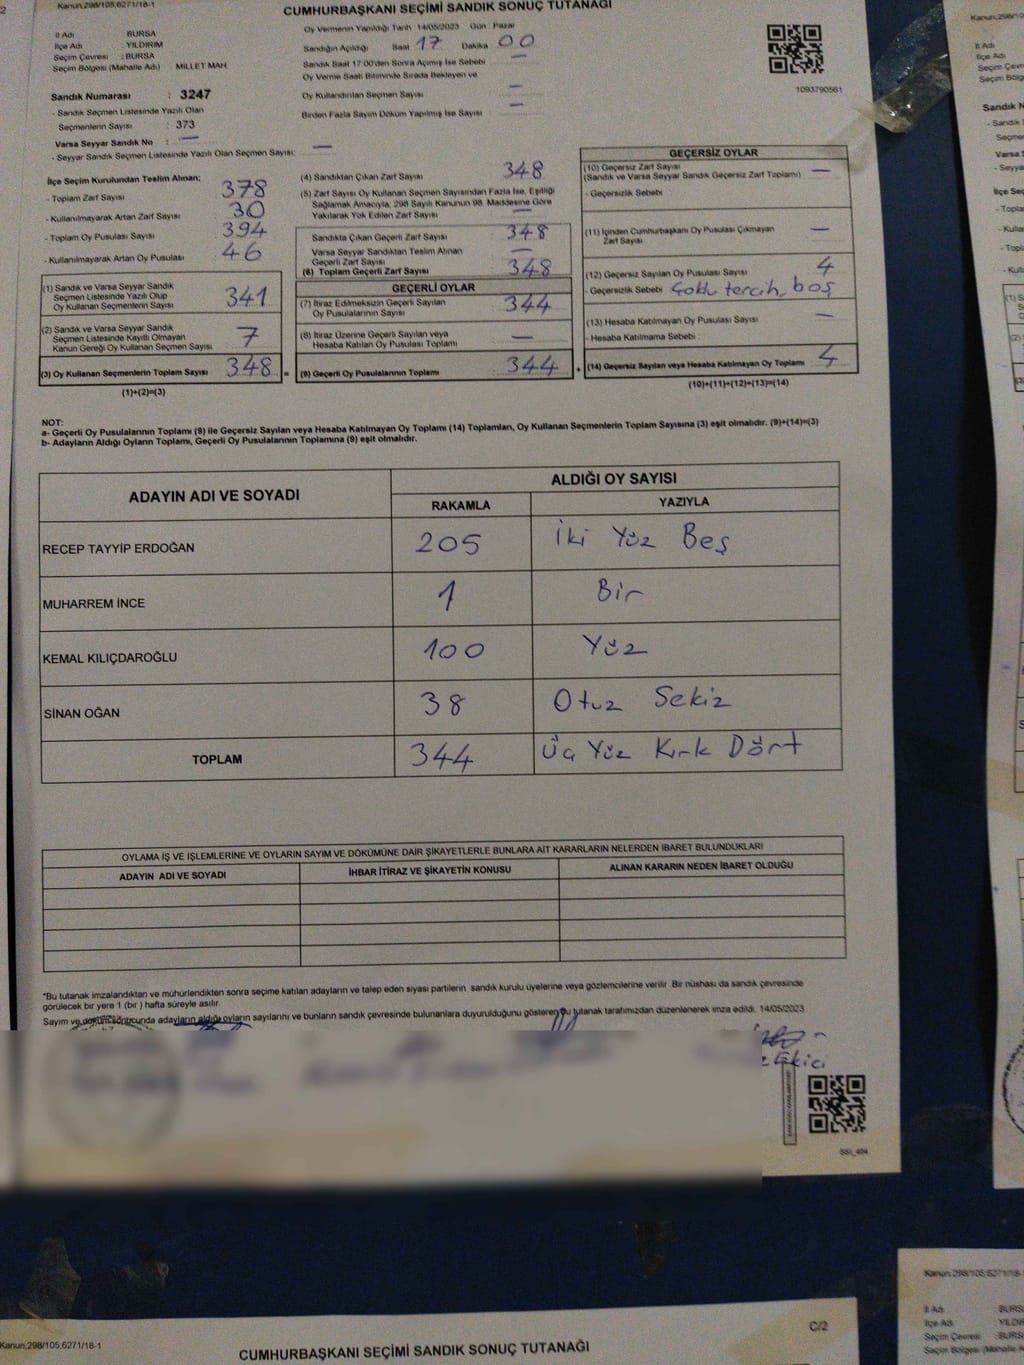 Kanun,298/105,6271/18-1
CUMHURBAŞKANI SEÇİMİ SANDIK SONUÇ TUTANAĞI
İl Adı : BURSA
İlçe Adı : YILDIRIM
Seçim Çevresi : BURSA
Seçim Bölgesi (Mahalle Adı) : MİLLET MAH.
Sandık Numarası : 3247
- Sandık Seçmen Listesinde Yazılı Olan
Seçmenlerin Sayısı : 373
Varsa Seyyar Sandık No : —
- Seyyar Sandık Seçmen Listesinde Yazılı Olan Seçmen Sayısı: —
Oy Vermenin Yapıldığı Tarih :14/05/2023 Gün : Pazar
Sandığın Açıldığı Saat 17 Dakika 00
Sandık Saat 17:00'den Sonra Açımış İse Sebebi —
Oy Verme Saati Bitiminde Sırada Bekleyen ve
Oy Kullandırılan Seçmen Sayısı —
Birden Fazla Sayım Döküm Yapılmış İse Sayısı —
1093790561
İlçe Seçim Kurulundan Teslim Alınan;
- Toplam Zarf Sayısı 378
- Kullanılmayarak Artan Zarf Sayısı 30
- Toplam Oy Pusulası Sayısı 394
- Kullanılmayarak Artan Oy Pusulası 46
(1) Sandık ve Varsa Seyyar Sandık
Seçmen Listesinde Yazılı Olup
Oy Kullanan Seçmenlerin Sayısı 341
(2) Sandık ve Varsa Seyyar Sandık
Seçmen Listesinde Kayıtlı Olmayan
Kanun Gereği Oy Kullanan Seçmen Sayısı 7
(3) Oy Kullanan Seçmenlerin Toplam Sayısı 348 =
(1)+(2)=(3)
(4) Sandıktan Çıkan Zarf Sayısı 348
(5) Zarf Sayısı Oy Kullanan Seçmen Sayısından Fazla İse, Eşitliği
Sağlamak Amacıyla; 298 Sayılı Kanunun 98. Maddesine Göre
Yakılarak Yok Edilen Zarf Sayısı —
Sandıkta Çıkan Geçerli Zarf Sayısı 348
Varsa Seyyar Sandıktan Teslim Alınan
Geçerli Zarf Sayısı —
(6) Toplam Geçerli Zarf Sayısı 348
GEÇERLİ OYLAR
(7) İtiraz Edilmeksizin Geçerli Sayılan
Oy Pusulalarının Sayısı 344
(8) İtiraz Üzerine Geçerli Sayılan veya
Hesaba Katılan Oy Pusulası Toplamı —
(9) Geçerli Oy Pusulalarının Toplamı 344 +
GEÇERSİZ OYLAR
(10) Geçersiz Zarf Sayısı
(Sandık ve Varsa Seyyar Sandık Geçersiz Zarf Toplamı) —
- Geçersizlik Sebebi
(11) İçinden Cumhurbaşkanı Oy Pusulası Çıkmayan
Zarf Sayısı —
(12) Geçersiz Sayılan Oy Pusulası Sayısı 4
- Geçersizlik Sebebi Çoklu tercih, boş
(13) Hesaba Katılmayan Oy Pusulası Sayısı —
- Hesaba Katılmama Sebebi
(14) Geçersiz Sayılan veya Hesaba Katılmayan Oy Toplamı 4
(10)+(11)+(12)+(13)=(14)
NOT:
a- Geçerli Oy Pusulalarının Toplamı (9) ile Geçersiz Sayılan veya Hesaba Katılmayan Oy Toplamı (14) Toplamları, Oy Kullanan Seçmenlerin Toplam Sayısına (3) eşit olmalıdır. (9)+(14)=(3)
b- Adayların Aldığı Oyların Toplamı, Geçerli Oy Pusulalarının Toplamına (9) eşit olmalıdır.
ADAYIN ADI VE SOYADI
ALDIĞI OY SAYISI
RAKAMLA YAZIYLA
RECEP TAYYİP ERDOĞAN 205 İki Yüz Beş
MUHARREM İNCE 1 Bir
KEMAL KILIÇDAROĞLU 100 Yüz
SİNAN OĞAN 38 Otuz Sekiz
TOPLAM 344 Üç Yüz Kırk Dört
OYLAMA İŞ VE İŞLEMLERİNE VE OYLARIN SAYIM VE DÖKÜMÜNE DAİR ŞİKAYETLERLE BUNLARA AİT KARARLARIN NELERDEN İBARET BULUNDUKLARI
ADAYIN ADI VE SOYADI İHBAR İTİRAZ VE ŞİKAYETİN KONUSU ALINAN KARARIN NEDEN İBARET OLDUĞU
*Bu tutanak imzalandıktan ve mühürlendikten sonra seçime katılan adayların ve talep eden siyasi partilerin sandık kurulu üyelerine veya gözlemcilerine verilir .Bir nüshası da sandık çevresinde
görülecek bir yere 1 (bir ) hafta süreyle asılır.
Sayım ve döküm sonucunda adayların aldığı oyların sayılarını ve bunların sandık çevresinde bulunanlara duyurulduğunu gösteren bu tutanak tarafımızdan düzenlenerek imza edildi. 14/05/2023
Kanun,298/105,6271/18-1
C/2
CUMHURBAŞKANI SEÇİMİ SANDIK SONUÇ TUTANAĞI
Kanun,298/105,6271/18-1
İl Adı : BURSA
İlçe Adı
Seçim Çevresi